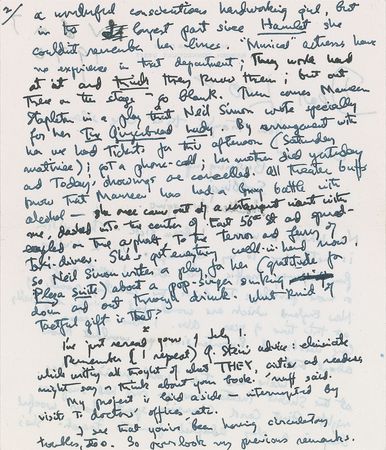 2/ a wonderful conscientious hardworking girl, but
in the longest part since Hamlet she
couldn't remember her lines. Musical actress have
no experience in that department; They work hard
at it and think they know them; but out
there on the stage go blank. Then comes Maureen
Stapleton in a play that Neil Simon wrote specially
for her The Gingerbread Lady. By arrangement with
her we had tickets for this afternoon (Saturday
matinee); got a phone-call; her mother died yesterday
and today's showings are cancelled. All theater buffs
know that Maureen has had a long battle with
alcohol – she once came out of a restaurant went with
one, dashed into the center of East 50th St and spread-
eagled on the asphalt to the terror and fury of
taxi-drivers. She's got everything well-in-hand now.
So Neil Simon writes a play for her (gratitude for
Plaza Suite) about a pop-singer sinking
down and out through drink. What kind of
tactful gift is that?
x
I've just reread yours of July 1.
Remember (I repeat) G. Stein's advice: eliminate
while writing all thought of what THEY, critics and readers
might say or think about your book. 'nuff said.
My project is laid aside – interrupted by
visits to doctors' offices etc.
I see that you've been having circulatory
troubles, too. So overlook my previous remarks.